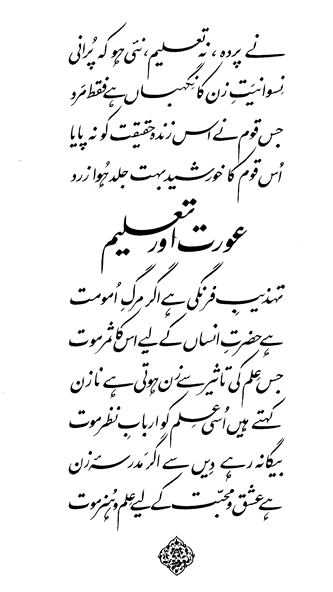 نے پردہ، نہ تعلیم، نئی ہو کہ پُرانی
نسوانیتِ زن کا نگہباں ہے فقط مرد
جس قوم نے اس زندہ حقیقت کو نہ پایا
اُس قوم کا خورشید بہت جلد ہُوا زرد
عورت اور تعلیم
تہذیبِ فرنگی ہے اگر مرگِ اُمومت
ہے حضرتِ انساں کے لیے اس کا ثمر موت
جس عِلم کی تاثیر سے زن ہوتی ہے نازن
کہتے ہیں اُسی علم کو اربابِ نظر موت
بیگانہ رہے دِیں سے اگر مَدرسۂ زن
ہے عشق و محبّت کے لیے علم و ہُنر موت